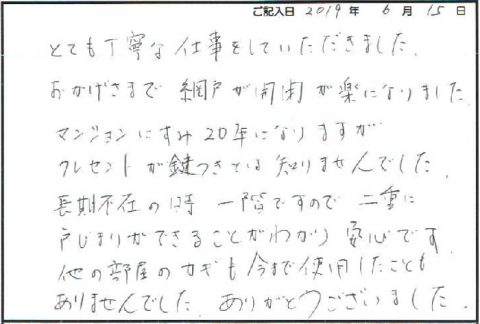 ご記入日 2019 年 6 月 15 日
とても丁寧な仕事をしていただきました.
おかげさまで 網戸が開閉が楽になりました
マンションにすみ20年になりますが
クレセントが鍵つきとは知りませんでした.
長期不在の時 一階ですので 二重に
戸じまりができることがわかり 安心です
他の部屋のカギも今まで使用したことも
ありませんでした. ありがとうございました.